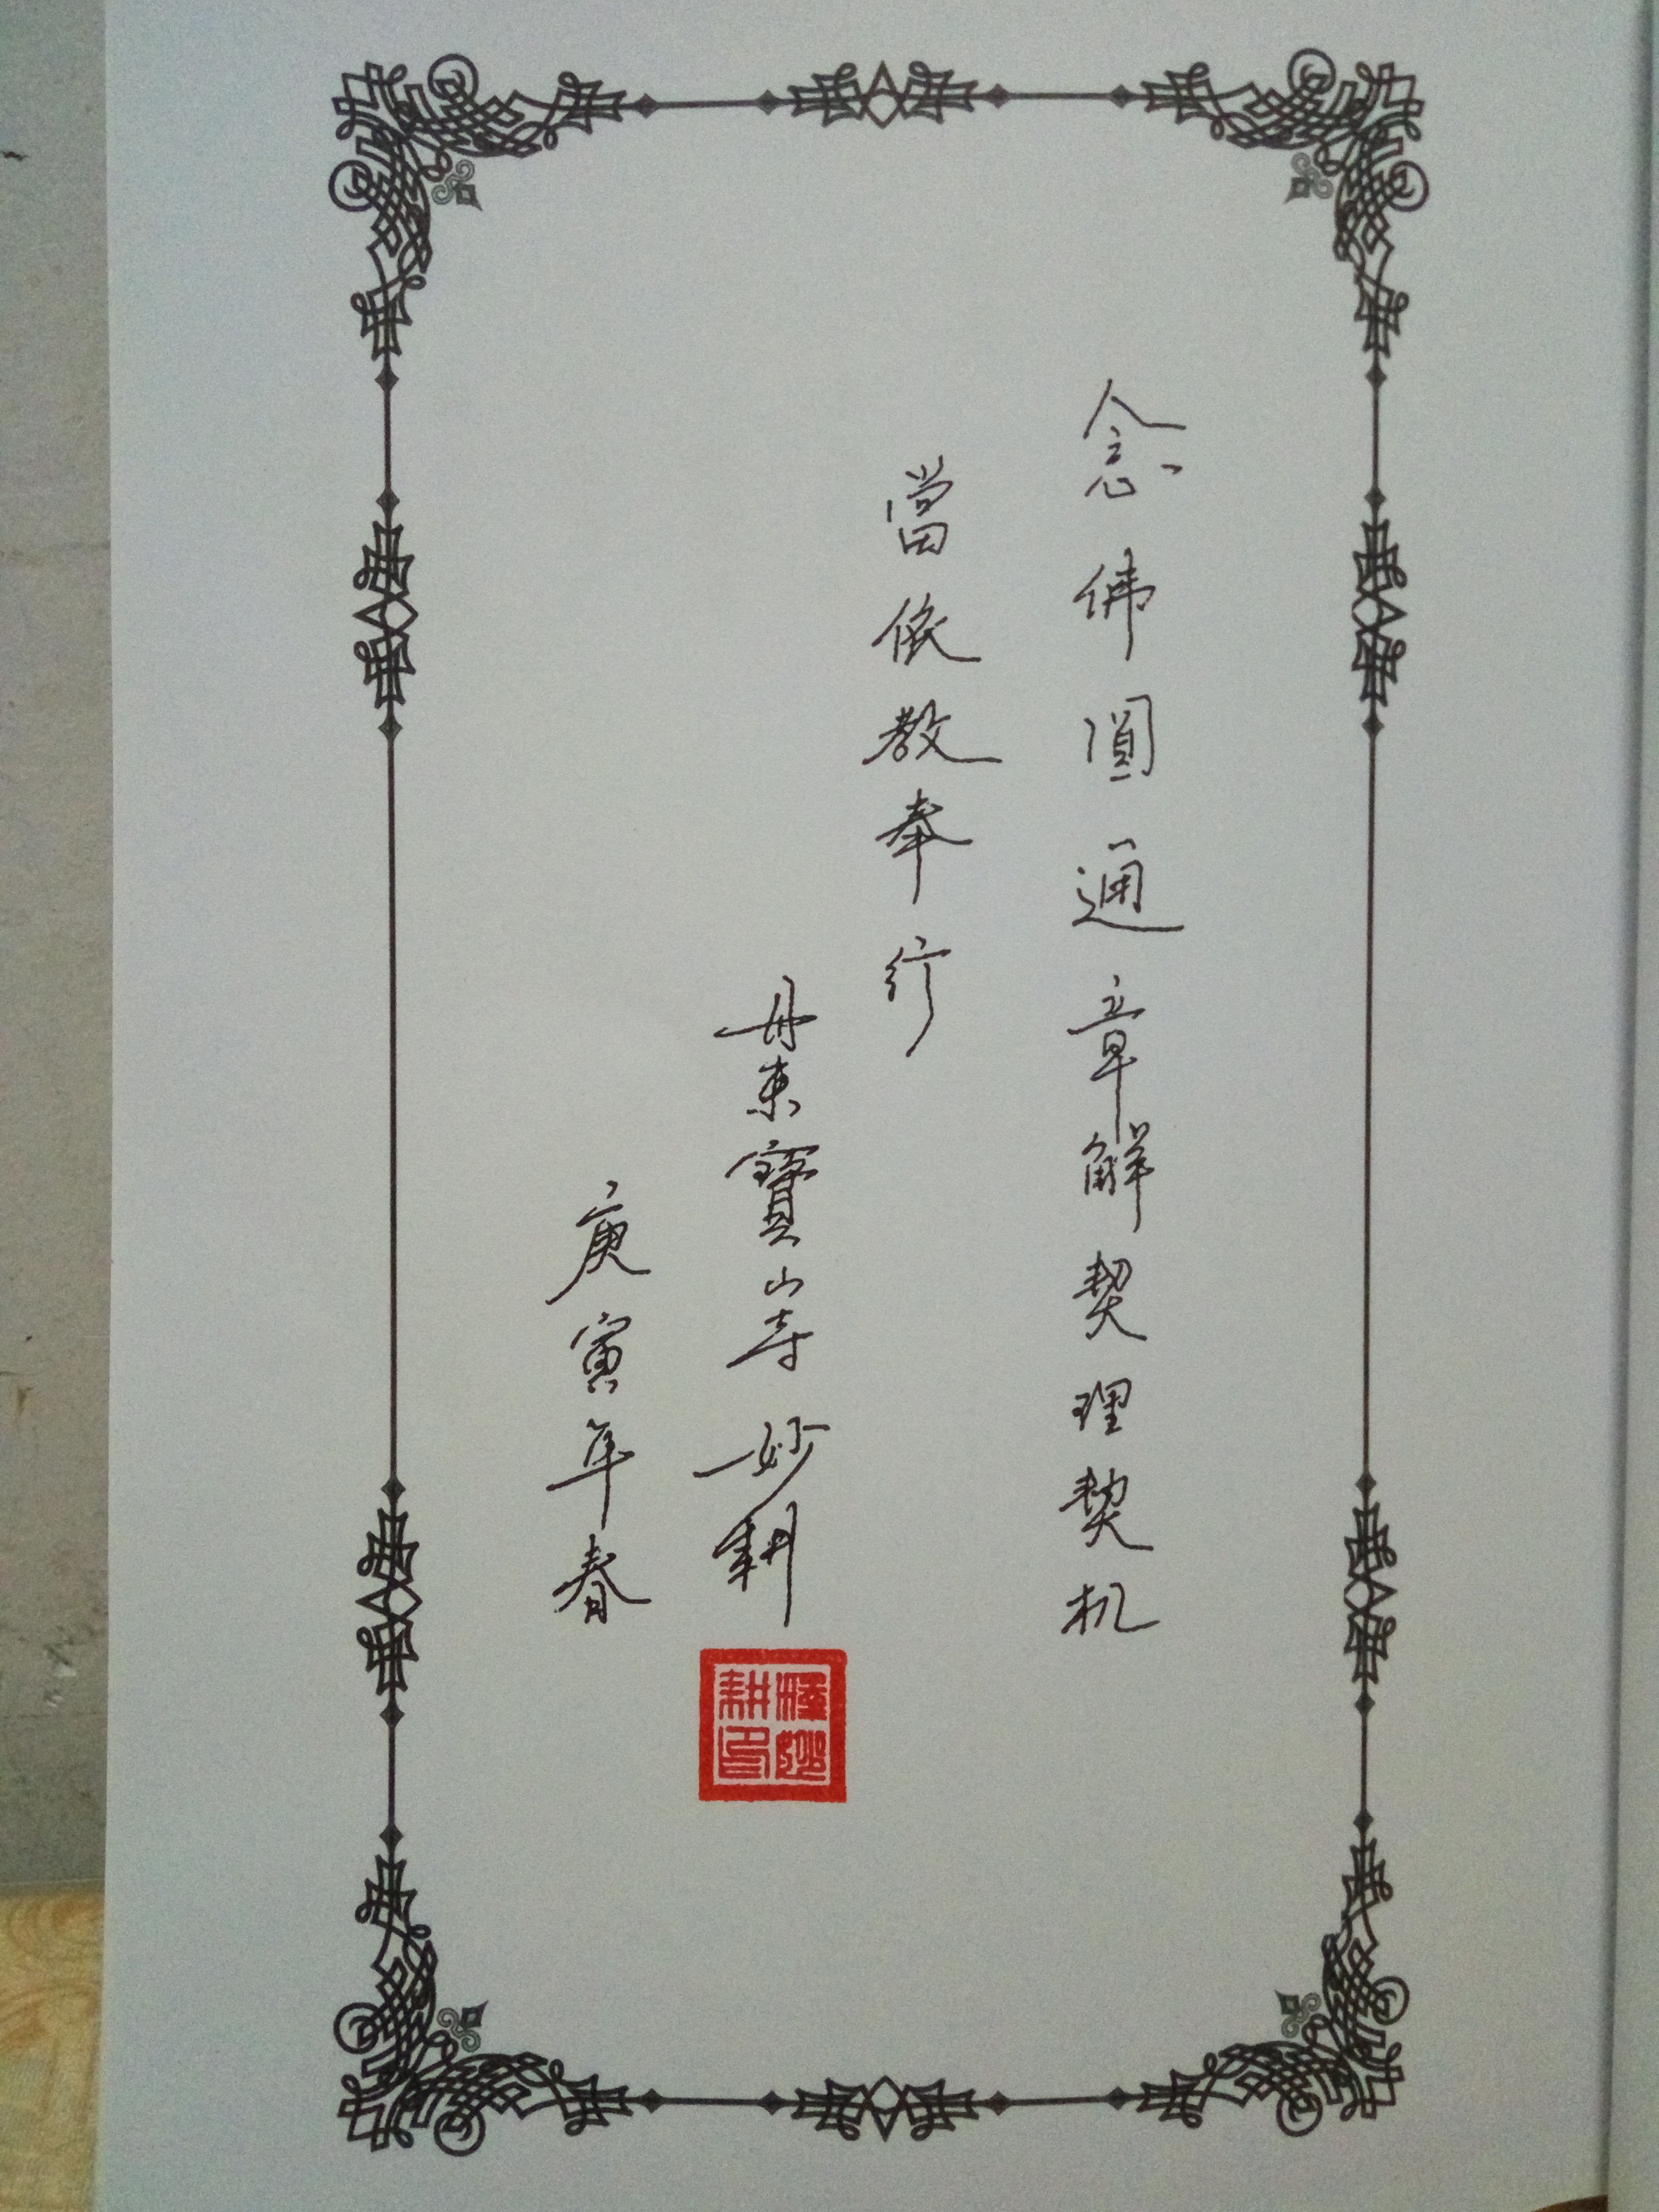 念佛圓通章解契理契机
當依教奉行
丹東寶山寺 妙耕
庚寅年春
釋妙
耕印